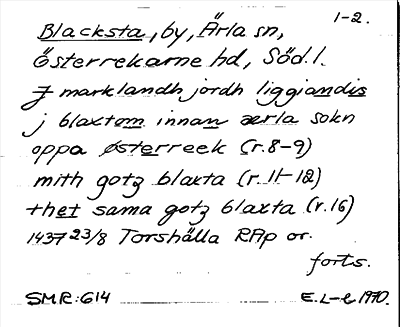 1-2.
Blacksta, by, Ärla sn,
Österrekarne hd, Söd. l.
J marklandh jordh liggiandis
j blaxtom innan ærla sokn
oppa østerreek (r. 8-9)
mith gotz blaxta (r. 11-12)
thet sama gotz blaxta (r. 16)
1437 23/8 Torshälla RAp or.
forts.
SMR: 614 E. L-e 1970.